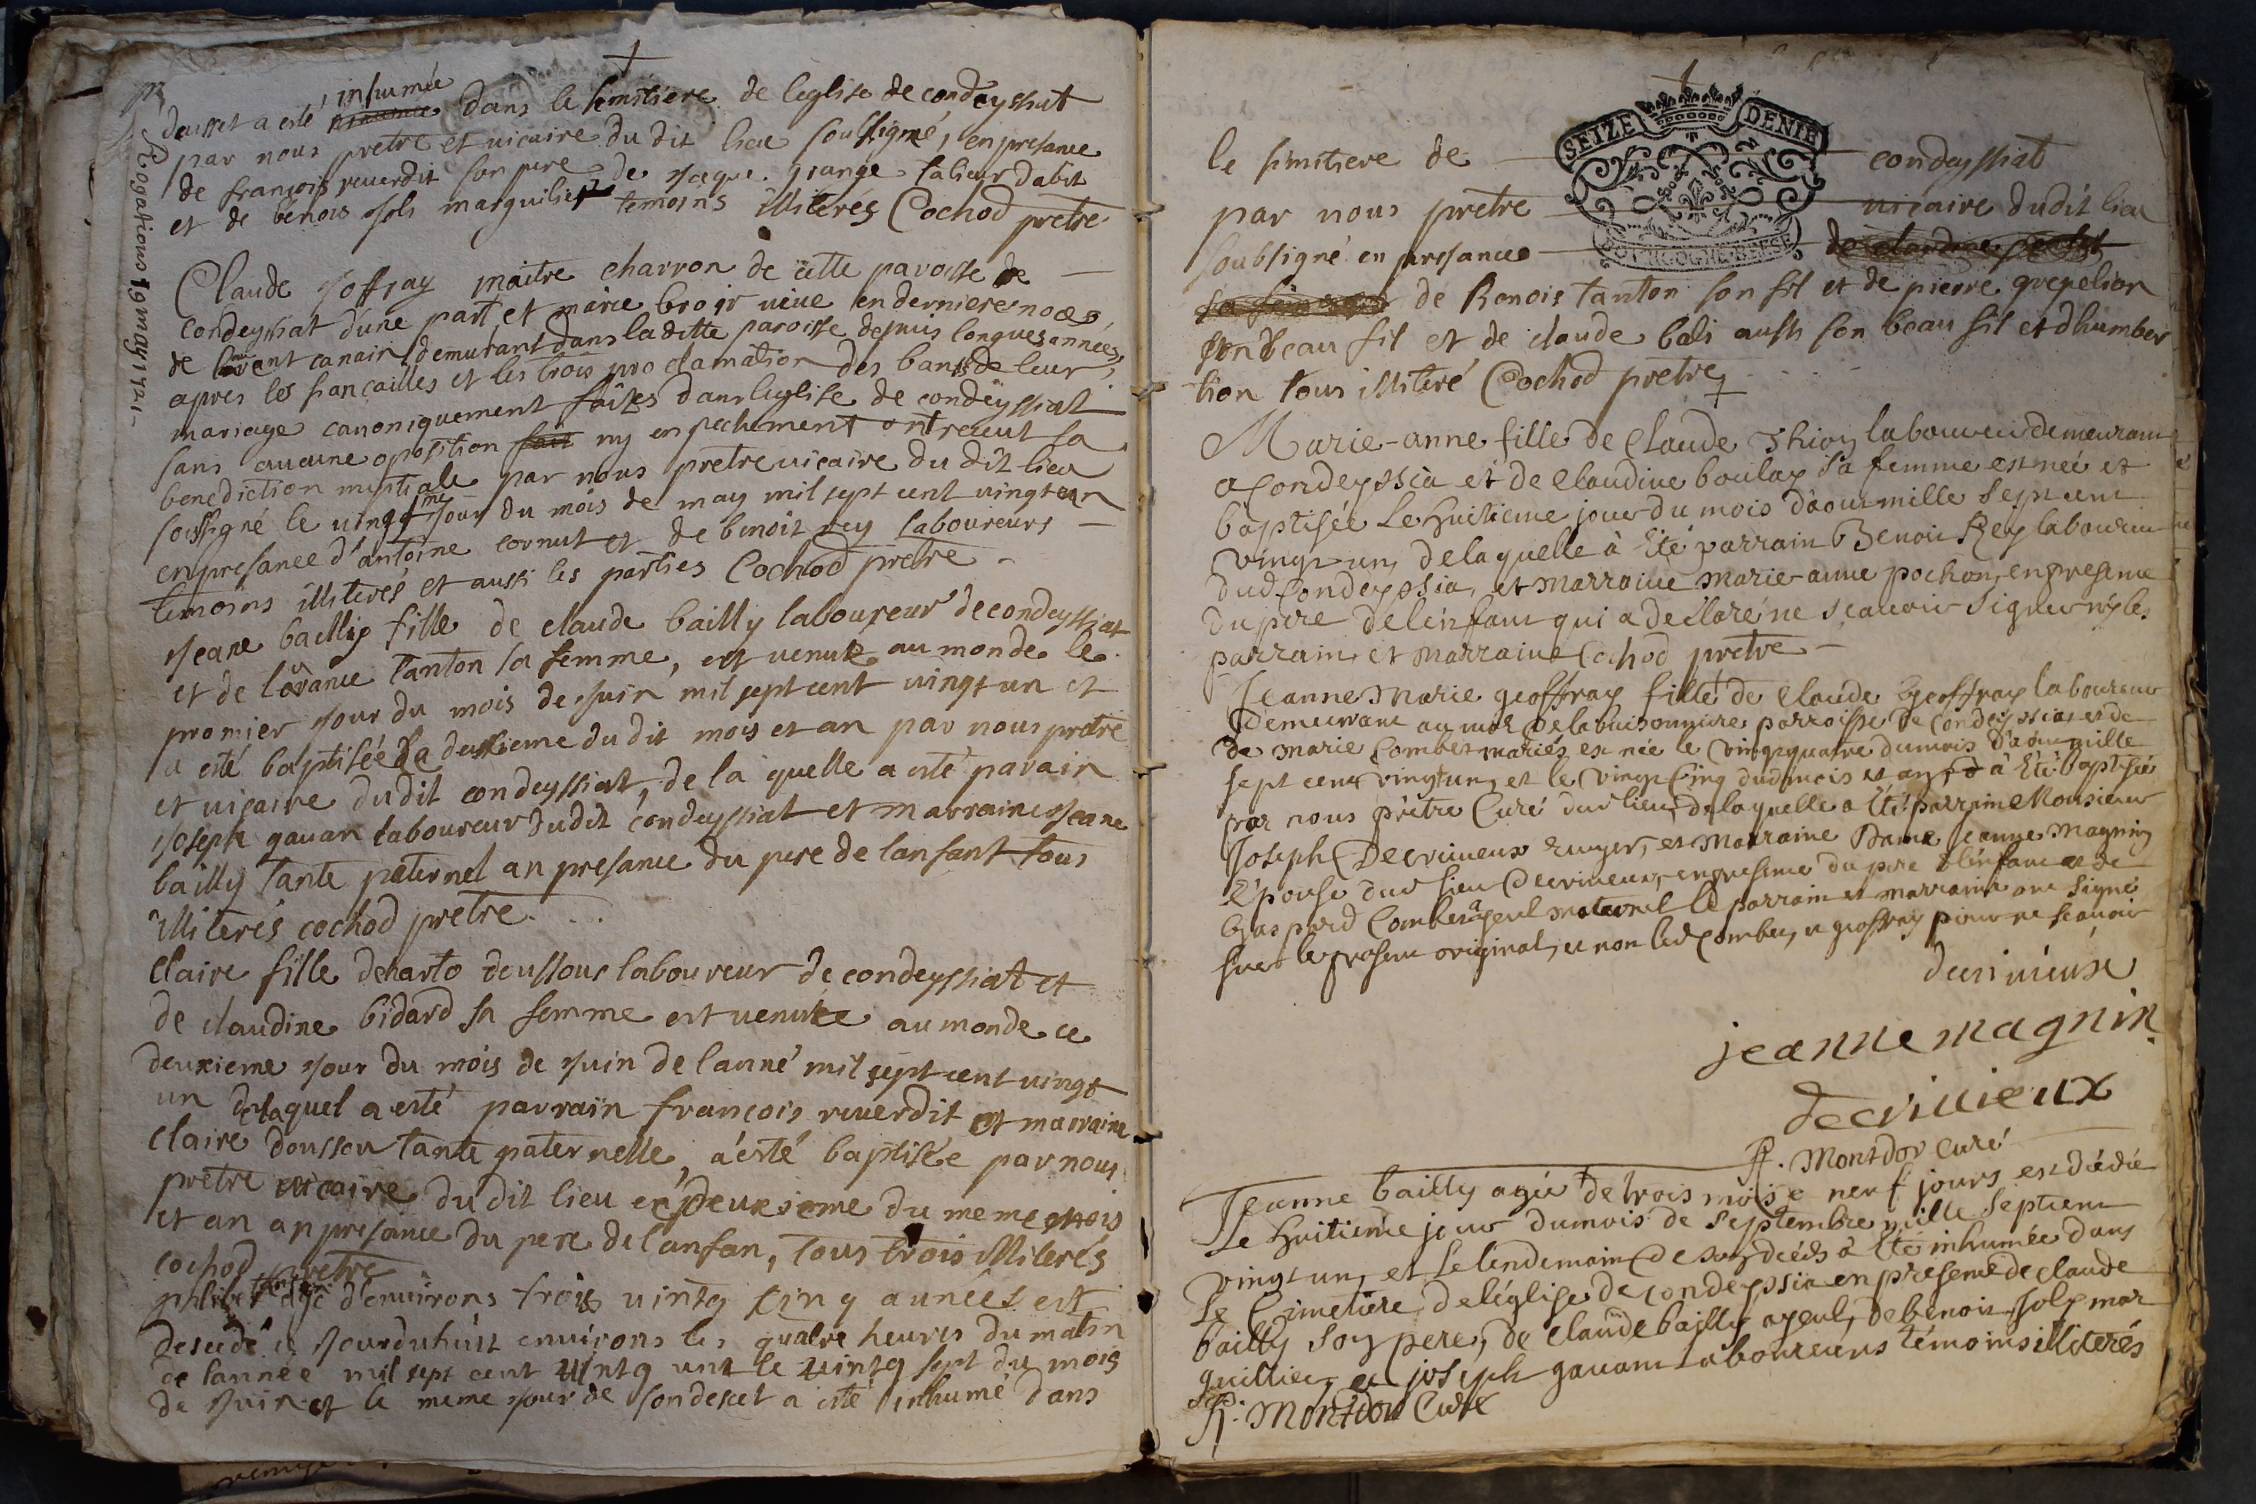 Rogations 19 may 1721
desset a esté inhumée dans le simitiere de leglise de condeyssiat
par nous pretre et vicaire du dit lieu soussigné, en presance
de françois reverdit son pere de jaque grange talieur dabit
et de benois joli marguilier temoins illiterés Cochod pretre
Claude joffray maitre charron de cette paroisse de
condeyssiat d'une part et marie broir veve en derniere noces
de lorent canain demurant dans la ditte paroisse depuis longues années,
apres les fiancailles et les trois proclamation des bans de leur
mariage canoniquement faites dans leglise de condeyssiat
sans aucune oposition ny enpechement ont receut la
benediction nuptiale par nous pretre vicaire du dit lieu
soussigné le vingt me jour du mois de may mil sept cent vingt un
en presance d'antoine cornut et de benoit rey laboureurs
temoins illiterés et aussi les parties Cochod pretre
jeane bailly fille de claude bailly laboureur de condeyssiat
et de lorance tanton sa femme, est venue au monde le
promier jour du mois de juin mil sept cent vingt un et
a esté baptisée la deuxieme du dit mois et an par nous pretre
et vicaire dudit condeyssiat, de la quelle a esté parain
joseph gavan laboureur dudit condeyssiat et marraine jeane
bailly tante paternel an presance du pere de lanfant tous
illiterés cochod pretre
Claire fille de narto doussous laboureur de condeyssiat et
de claudine bidard sa femme est venue au monde ce
deuxieme jour du mois de juin de lanné mil sept cent vingt
un delaquel a esté parrain françois reverdit et marraine
claire doussou tante paternelle, a esté baptisée par nous
pretre vicaire du dit lieu ce deuxieme du meme mois
et an an presance du pere de lanfan, tous trois illiterés
cochod pretre
philiber tanton agé d'environs trois vintg cinq années est
desedé jourduhuit environs les quatre heures du matin
de lannée mil sept cent vintg unt le vintg sept du mois
de juin et le meme jour de son deset a esté inhumé dans
SEIZE DENIE
BOURGOGNE BRESSE
le simitiere de condeyssiat
par nous pretre vicaire dudit lieu
soubsigné en presance
de Benois tanton son fil et de pierre grepelion
son beau fil et de claude bali aussi son beau fil et dhumber
tion tous illiteré Cochod pretre
Marie-anne fille de Claude Thion laboureur demeurant
a Condeyssia et de Claudine boulay sa femme est neé et
baptisée le Huitieme jour du mois d'aoust mille sept cent
vingt un, de laquelle à Eté parrain Benoit Rey laboureur
dud Condeyssia, et marraine marie-anne pochon, en presence
du pere de lenfant qui a declaré ne scavoir signer ny les
parrain et marraine Cochod pretre
Jeanne Marie geoffray fille de claude geoffray laboureur
demeurant au mas de la buisonniere parroisse de Condeyssia et de
de marie Combet mariés est née le vingt quatre du mois d'aoust mille
sept cent vingt un, et le vingt cinq dud mois et an à Eté baptisée
par nous prêtre Curé dud lieu, de laquelle a Eté parrain Monsieur
Joseph Decrivieux Ecuyer, et Marraine Dame Jeanne Magnin
Epouse dud sieur Decrivieux, en presence du pere de lenfant et de
Gaspard Combet ayeul maternel le parrain et marraine ont signé
sur le present original, et non led combet, et geoffray pour ne scavoir
decrivieux
jeanne magnin
decrivieux
R. Montdor Curé
Jeanne bailly agée de trois mois e neuf jours est dédée
le Huitieme jour du mois de septembre mille sept cent
vingt un, et le lendemain de son decés à Eté inhumée dans
le Cimetiere de léglise de condeyssia en presence de claude
bailly son pere, de claude bailly ayeul, de benoit joly mar
guillier, et joseph gavant laboureurs témoins illiterés
R. Montdor Curé